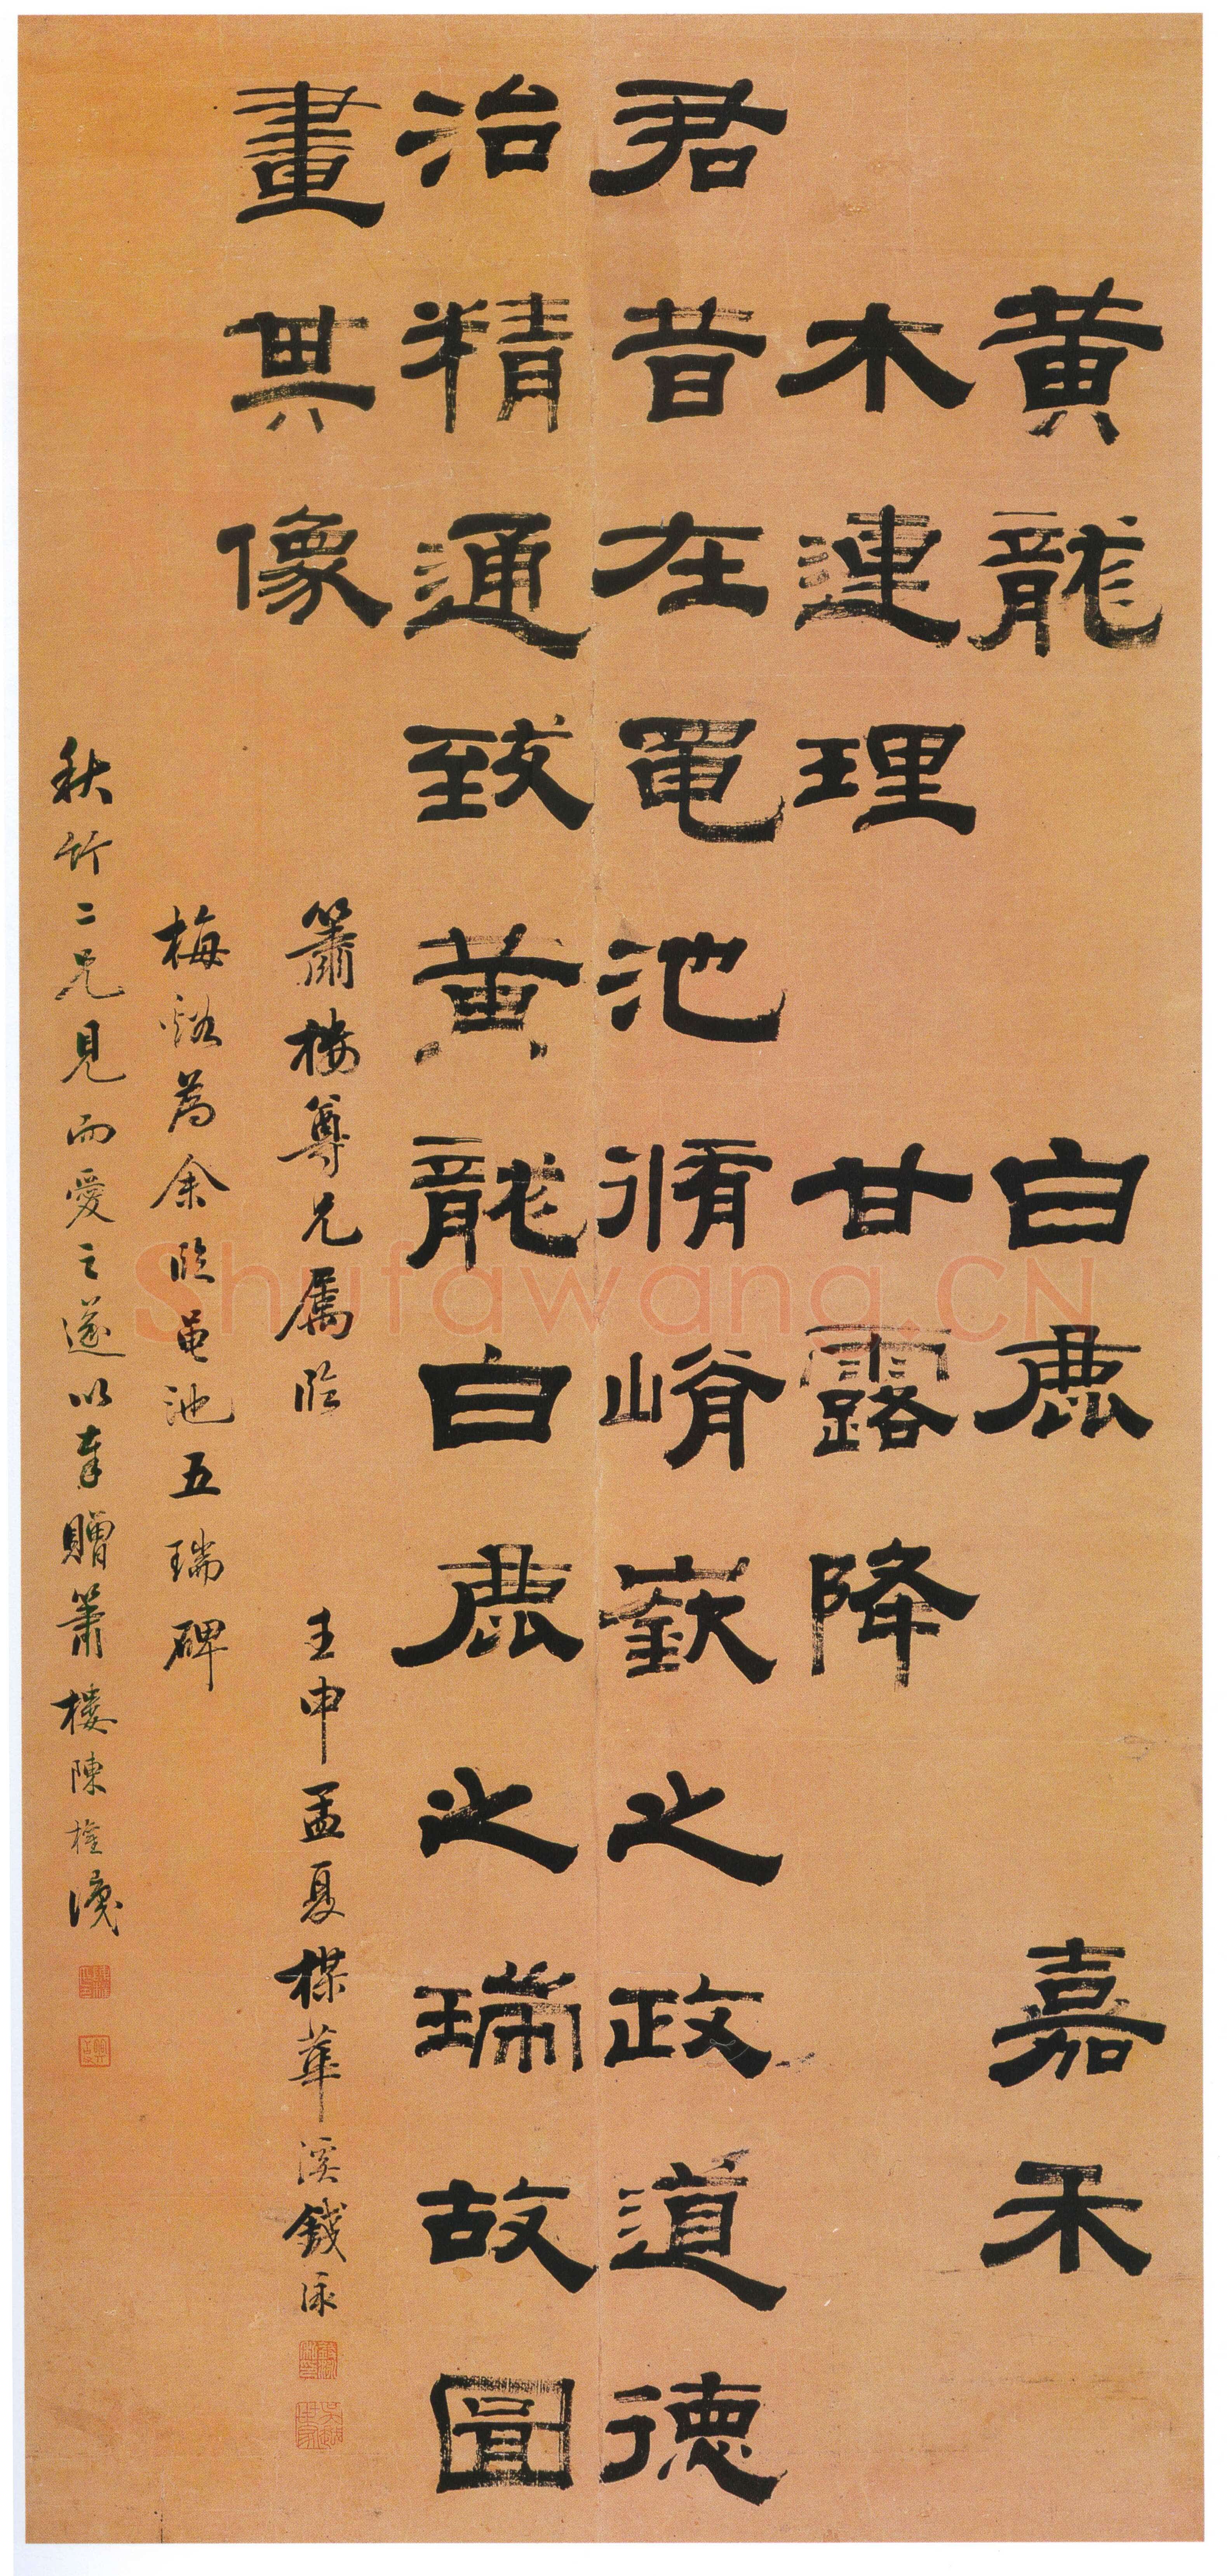 黃龍 白鹿 嘉禾
木連理 甘露降
君昔在黽池脩崤嶔之政道德
治精通致黃龍白鹿之瑞故圖
畫其像
簫樓尊兄屬臨 壬申孟夏楳華溪錢泳
梅谿為余臨黽池五瑞碑
秋竹二兄見而愛之遂以奉贈簫樓陳權識
Shufawang.CN